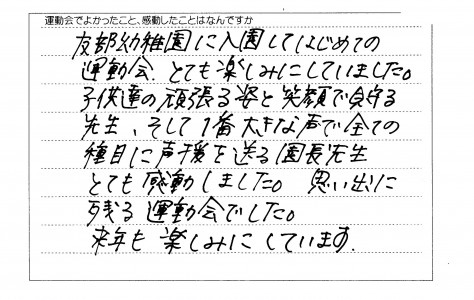 運動会でよかったこと、感動したことはなんですか
友部幼稚園に入園してはじめての
運動会、とても楽しみにしていました。
子供達の頑張る姿と笑顔で見守る
先生、そして1番大きな声で全ての
種目に声援を送る園長先生
とても感動しました。思い出に
残る運動会でした。
来年も楽しみにしています.